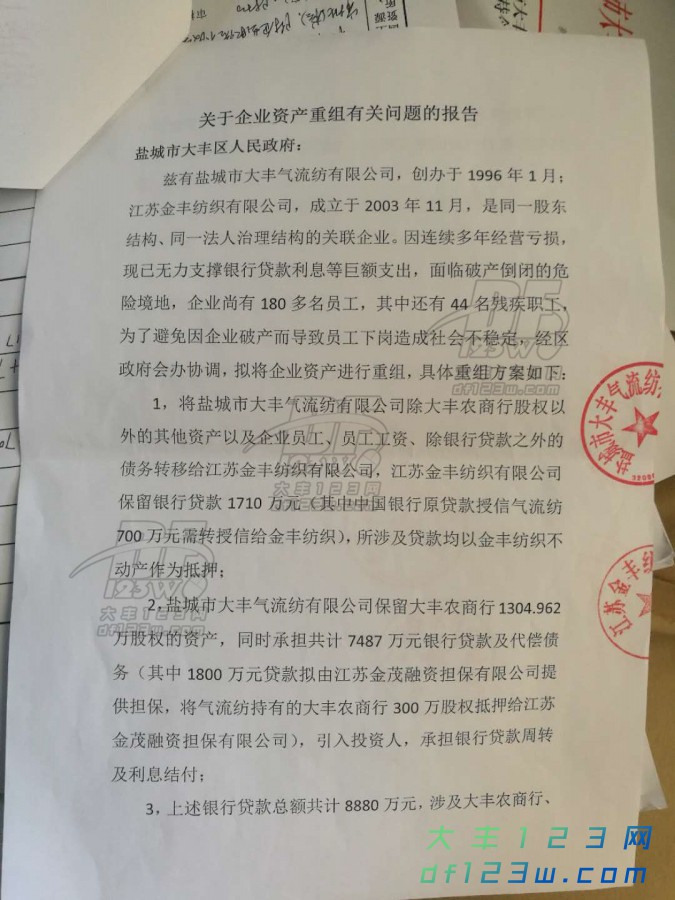 关于企业资产重组有关问题的报告
盐城市大丰区人民政府：
兹有盐城市大丰气流纺有限公司，创办于 1996 年 1 月；
江苏金丰纺织有限公司，成立于 2003 年 11 月，是同一股东
结构、同一法人治理结构的关联企业。因连续多年经营亏损，
现已无力支撑银行贷款利息等巨额支出，面临破产倒闭的危
险境地，企业尚有 180 多名员工，其中还有 44 名残疾职工，
为了避免因企业破产而导致员工下岗造成社会不稳定，经区
政府会办协调，拟将企业资产进行重组，具体重组方案如下：
1，将盐城市大丰气流纺有限公司除大丰农商行股权以
外的其他资产以及企业员工、员工工资、除银行贷款之外的
债务转移给江苏金丰纺织有限公司，江苏金丰纺织有限公司
保留银行贷款 1710 万元（其中中国银行原贷款授信气流纺
700 万元需转授信给金丰纺织），所涉及贷款均以金丰纺织不
动产作为抵押；
2，盐城市大丰气流纺有限公司保留大丰农商行 1304.962
万股权的资产，同时承担共计 7487 万元银行贷款及代偿债
务（其中 1800 万元贷款拟由江苏金茂融资担保有限公司提
供担保，将气流纺持有的大丰农商行 300 万股权抵押给江苏
金茂融资担保有限公司），引入投资人，承担银行贷款周转
及利息结付；
3，上述银行贷款总额共计 8880 万元，涉及大丰农商行、
盐城市大丰气流纺
江苏金丰纺
DF
123W
大丰123网
df123w.com
DF
123W
大丰123网
df123w.com
大丰123网
df123w.com